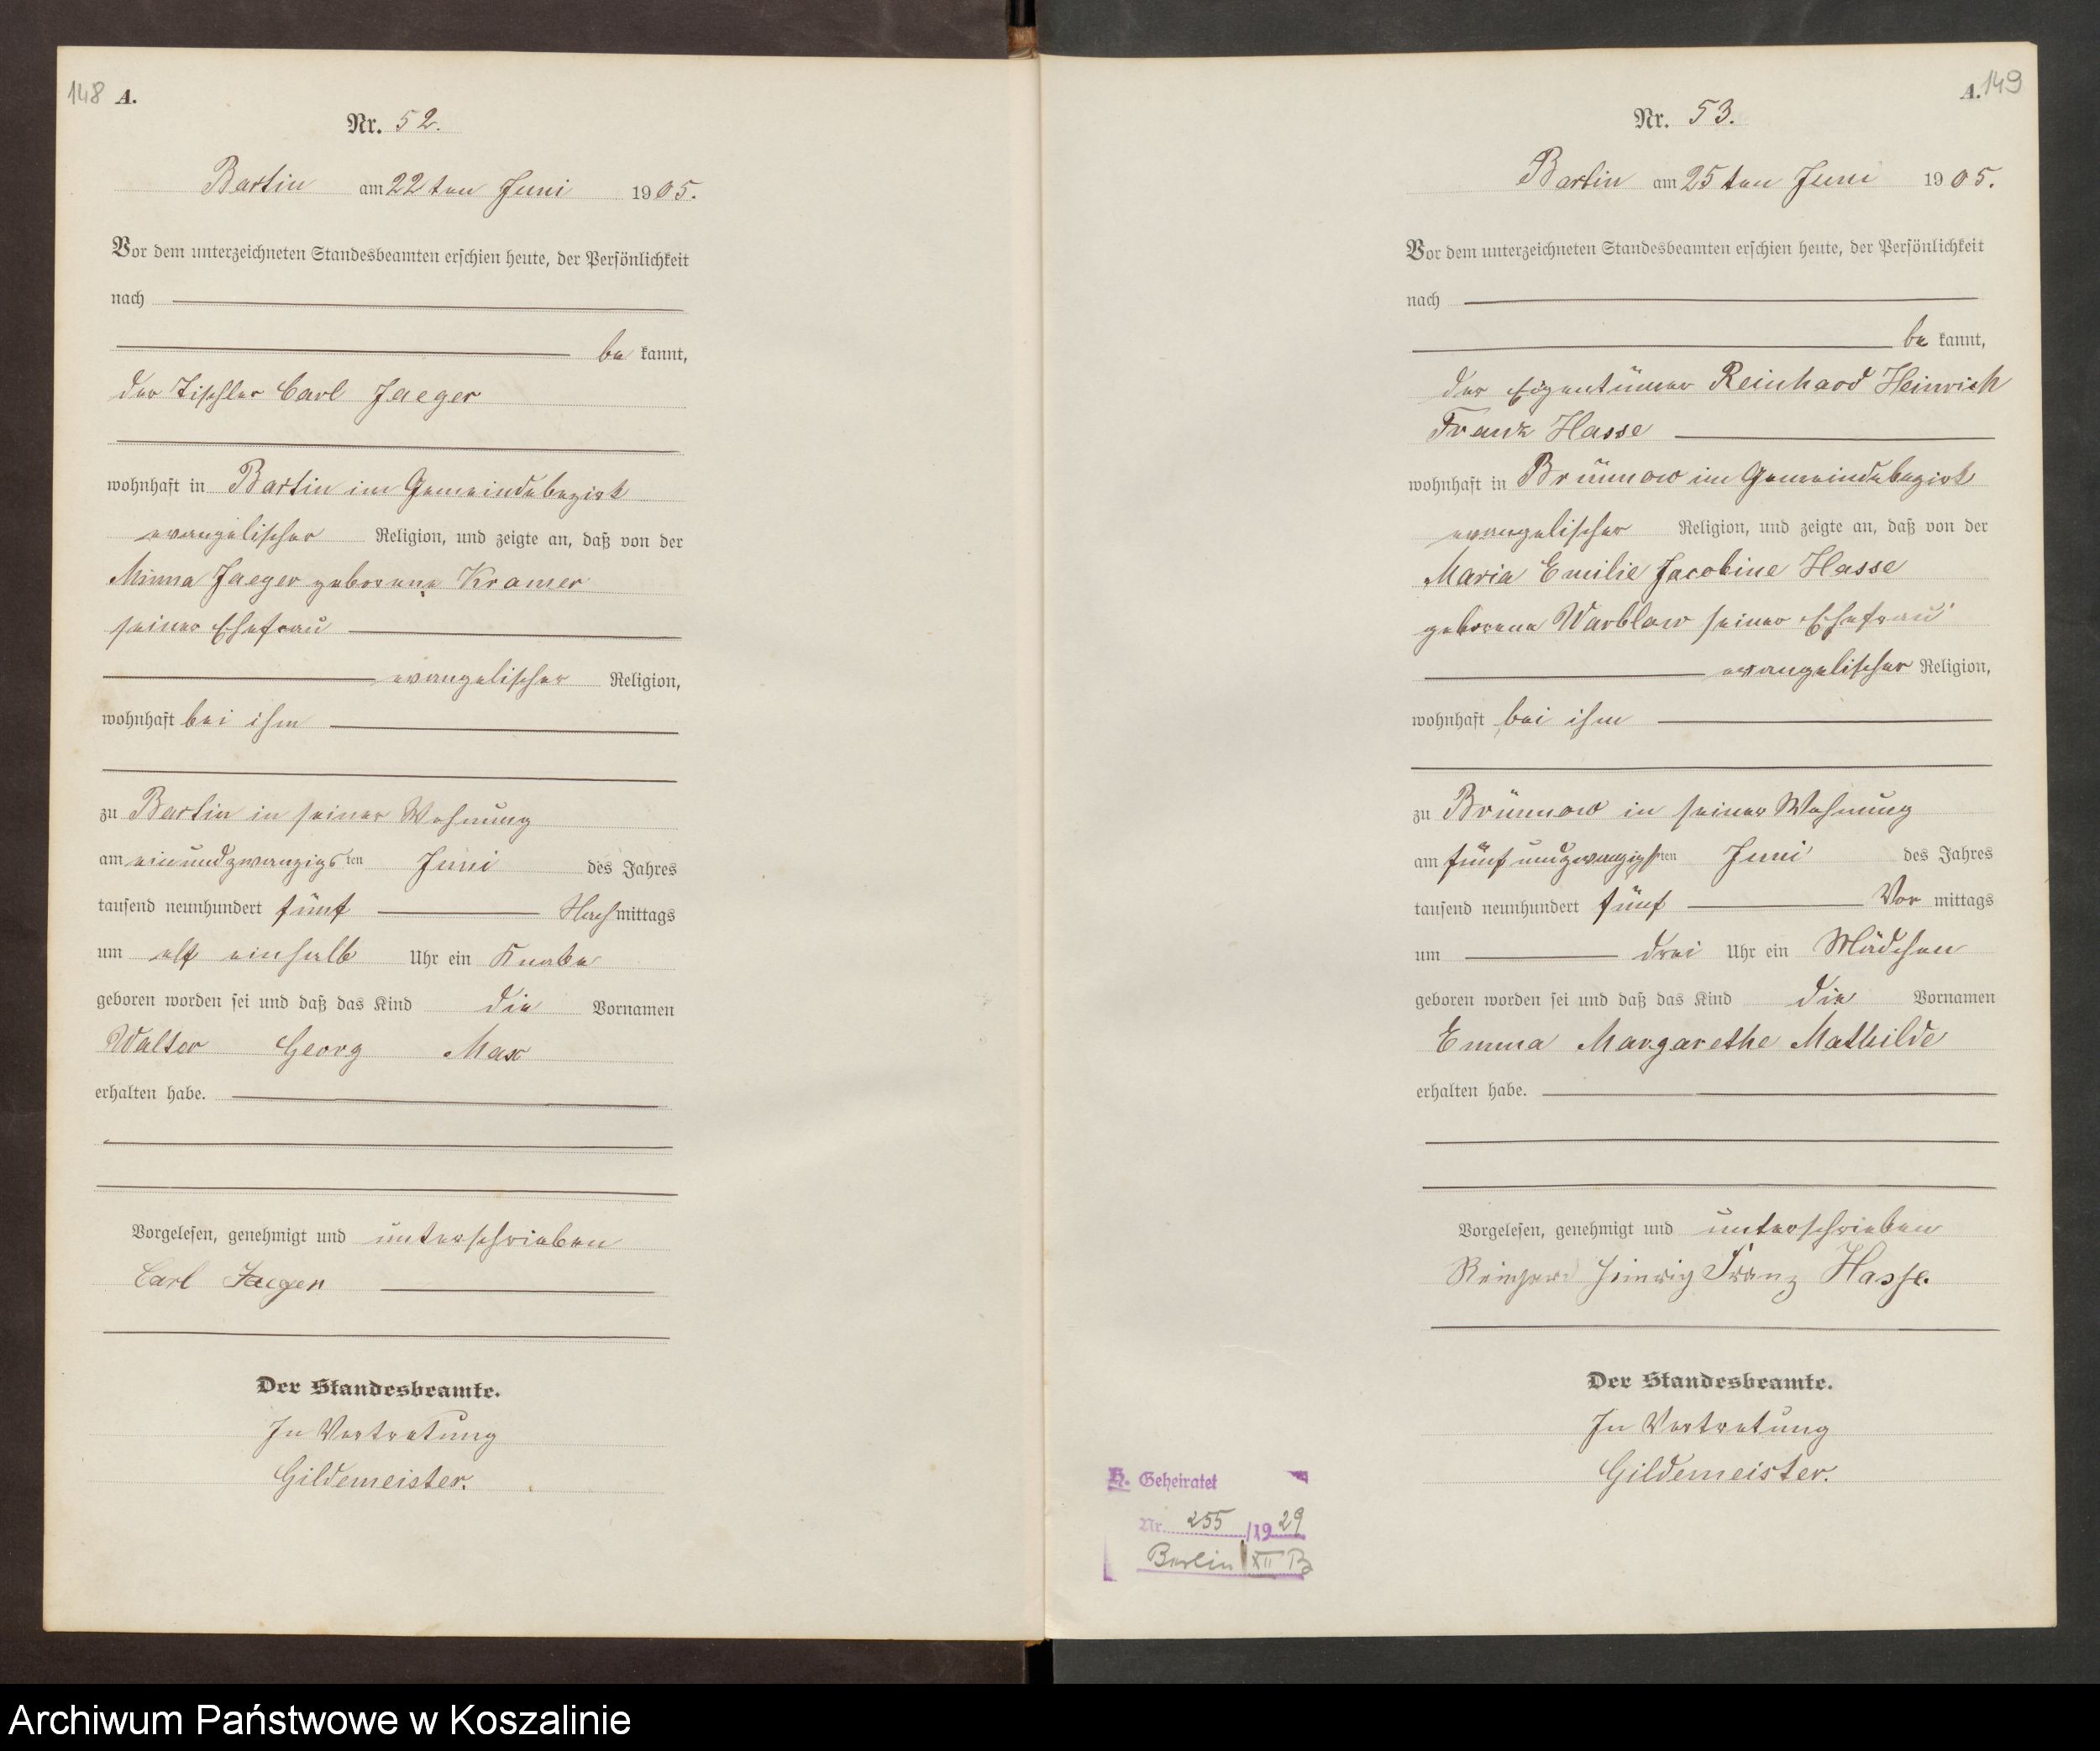 148 A.
Nr. 52.
Bartin am 22ten Juni 1905.
Vor dem unterzeichneten Standesbeamten erschien heute, der Persönlichkeit
nach
be kannt,
der Tischler Carl Jaeger
wohnhaft in Bartin im Gemeindebezirk
evangelischer Religion, und zeigte an, daß von der
Minna Jaeger geborene Kramer
seiner Ehefrau
evangelischer Religion,
wohnhaft bei ihm
zu Bartin in seiner Wohnung
am einundzwanzigsten Juni des Jahres
tausend neunhundert fünf Nachmittags
um elf einhalb Uhr ein Knabe
geboren worden sei und daß das Kind die Vornamen
Walter Georg Max
erhalten habe.
Vorgelesen, genehmigt und unterschrieben
Carl Jaeger
Der Standesbeamte.
In Vertretung
Gildemeister.
A. 149
Nr. 53.
Bartin am 25ten Juni 1905.
Vor dem unterzeichneten Standesbeamten erschien heute, der Persönlichkeit
nach
be kannt,
der Eigentümer Reinhard Heinrich
Franz Hasse
wohnhaft in Brünnow im Gemeindebezirk
evangelischer Religion, und zeigte an, daß von der
Maria Emilie Jacobine Hasse
geborene Warblow seiner Ehefrau
evangelischer Religion,
wohnhaft bei ihm
zu Brünnow in seiner Wohnung
am fünfundzwanzigsten Juni des Jahres
tausend neunhundert fünf Vor mittags
um drei Uhr ein Mädchen
geboren worden sei und daß das Kind die Vornamen
Emma Margarethe Mathilde
erhalten habe.
Vorgelesen, genehmigt und unterschrieben
Reinhard Heinrig Franz Hasse.
Der Standesbeamte.
In Vertretung
Gildemeister.
H. Geheiratet
Nr. 255 /1929
Berlin XII B
Archiwum Państwowe w Koszalinie